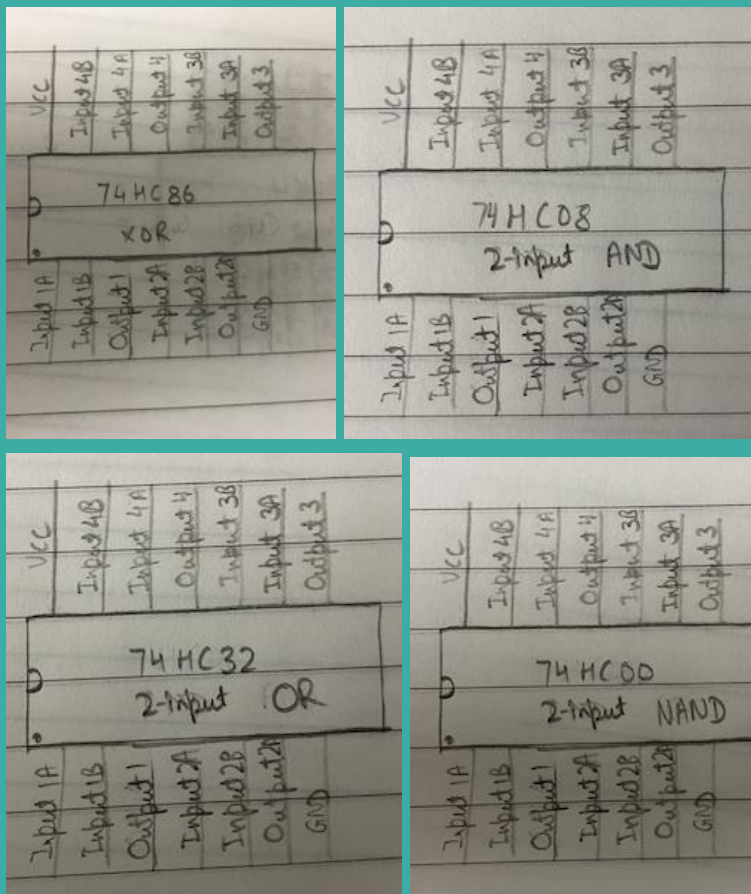 VCC
Input 4B
Input 4A
Output 4
Input 3B
Input 3A
Output 3
74HC86
XOR
Input 1A
Input 1B
Output 1
Input 2A
Input 2B
Output 2
GND
VCC
Input 4B
Input 4A
Output 4
Input 3B
Input 3A
Output 3
74HC08
2-input AND
Input 1A
Input 1B
Output 1
Input 2A
Input 2B
Output 2
GND
VCC
Input 4B
Input 4A
Output 4
Input 3B
Input 3A
Output 3
74HC32
2-input OR
Input 1A
Input 1B
Output 1
Input 2A
Input 2B
Output 2
GND
VCC
Input 4B
Input 4A
Output 4
Input 3B
Input 3A
Output 3
74HC00
2-input NAND
Input 1A
Input 1B
Output 1
Input 2A
Input 2B
Output 2
GND